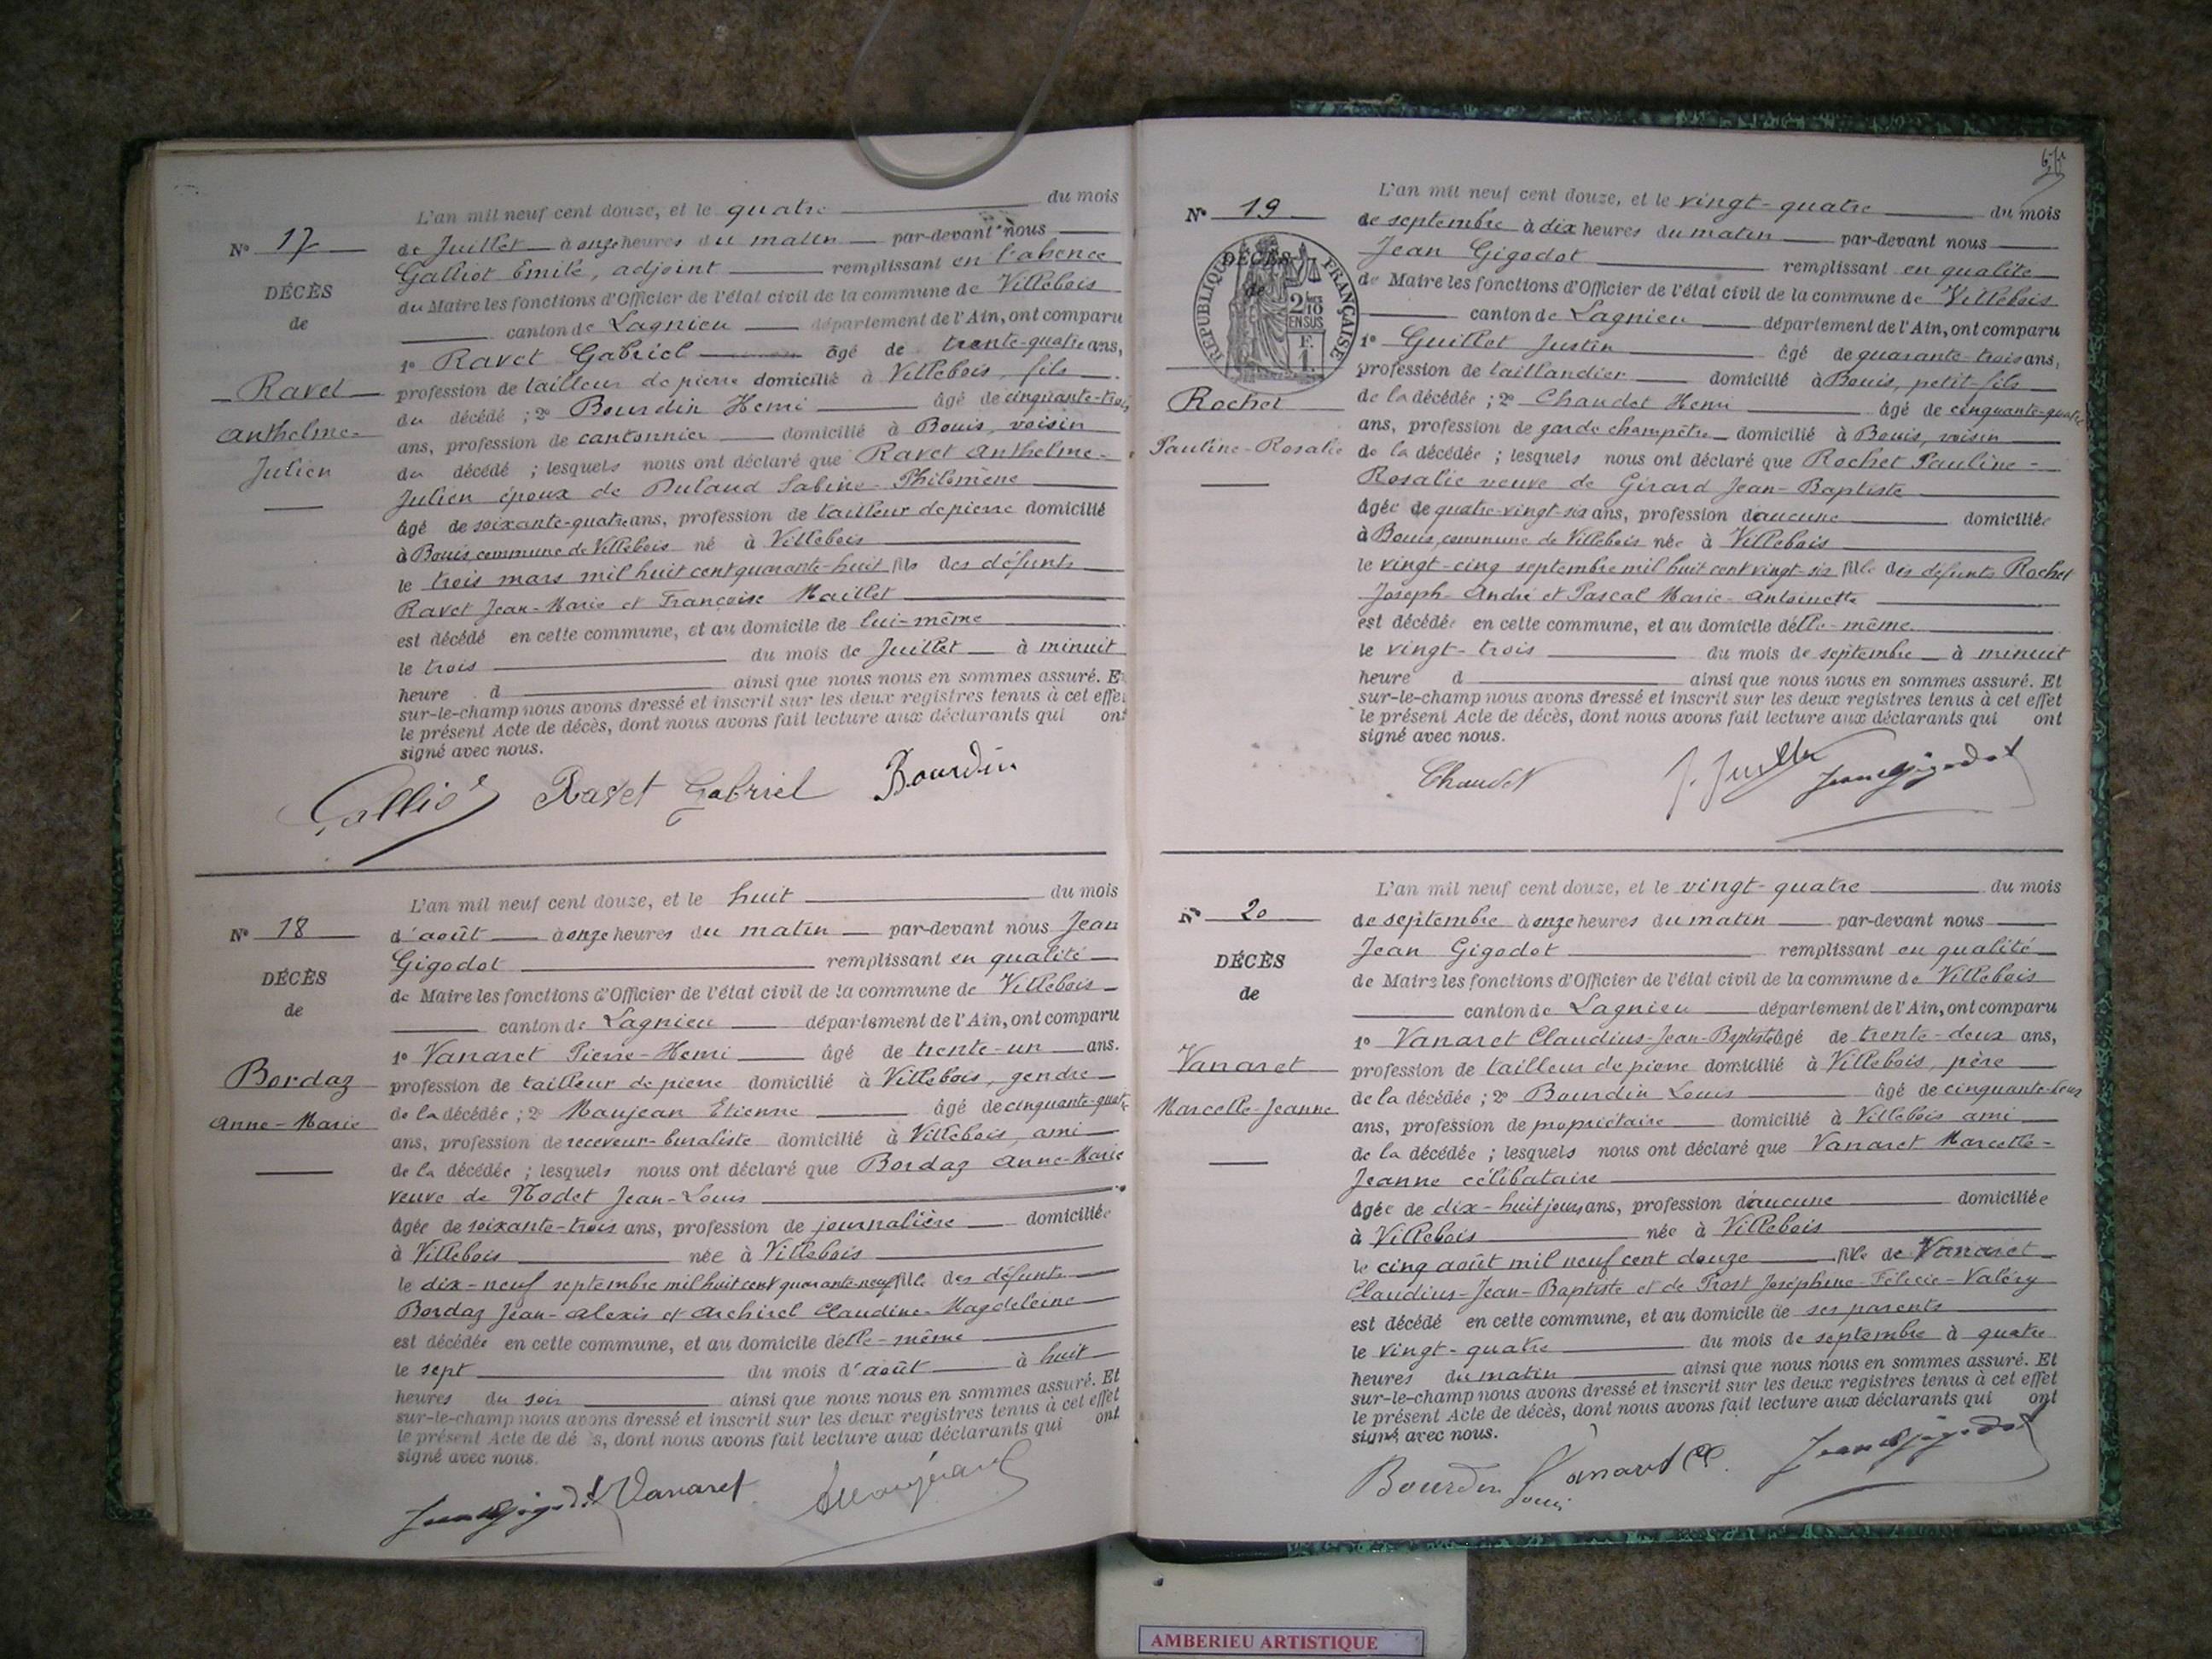 L'an mil neuf cent douze, et le quatre du mois
N° 17
de Juillet à onze heures du matin par-devant nous
Galliot Emile, adjoint remplissant en l'absence
DÉCÈS
du Maire les fonctions d'Officier de l'état civil de la commune de Villebois
de
canton de Lagnieu département de l'Ain, ont comparu
1° Ravet Gabriel âgé de trente-quatre ans,
Ravet
profession de tailleur de pierre domicilié à Villebois, fils
du décédé ; 2° Bourdin Henri âgé de cinquante-trois
Anthelme-
ans, profession de cantonnier domicilié à Bouis, voisin
Julien
du décédé ; lesquels nous ont déclaré que Ravet Anthelme-
Julien époux de Dulaud Sabine-Philomène
âgé de soixante-quatre ans, profession de tailleur de pierre domicilié
à Bouis, commune de Villebois né à Villebois
le trois mars mil huit cent quarante-huit fils des défunts
Ravet Jean-Marie et Françoise Maillet
est décédé en cette commune, et au domicile de lui-même
le trois du mois de Juillet à minuit
heure d ainsi que nous nous en sommes assuré. Et
sur-le-champ nous avons dressé et inscrit sur les deux registres tenus à cet effet
le présent Acte de décès, dont nous avons fait lecture aux déclarants qui ont
signé avec nous.
Galliot Ravet Gabriel Bourdin
L'an mil neuf cent douze, et le huit du mois
N° 18
d'août à onze heures du matin par-devant nous Jean
Gigodot remplissant en qualité
DÉCÈS
de Maire les fonctions d'Officier de l'état civil de la commune de Villebois
de
canton de Lagnieu département de l'Ain, ont comparu
1° Vanaret Pierre-Henri âgé de trente-un ans.
Bordaz
profession de tailleur de pierre domicilié à Villebois, gendre
Anne-Marie
de la décédée ; 2° Maujean Etienne âgé de cinquante-quatre
ans, profession de receveur-buraliste domicilié à Villebois, ami
de la décédée ; lesquels nous ont déclaré que Bordaz Anne-Marie
veuve de Nodet Jean-Louis
âgée de soixante-trois ans, profession de journalière domiciliée
à Villebois née à Villebois
le dix-neuf septembre mil huit cent quarante-neuf fille des défunts
Bordaz Jean-Alexis et Archirel Claudine-Magdeleine
est décédée en cette commune, et au domicile d'elle-même
le sept du mois d'août à huit
heures du soir ainsi que nous nous en sommes assuré. Et
sur-le-champ nous avons dressé et inscrit sur les deux registres tenus à cet effet
le présent Acte de dé s, dont nous avons fait lecture aux déclarants qui ont
signé avec nous.
Jean Gigodot Vanaret Maujean
L'an mil neuf cent douze, et le vingt-quatre du mois
N° 19
de septembre à dix heures du matin par-devant nous
Jean Gigodot remplissant en qualité
DÉCÈS
de
RÉPUBLIQUE FRANÇAISE
2/10 EN SUS
F. 1.
de Maire les fonctions d'Officier de l'état civil de la commune de Villebois
canton de Lagnieu département de l'Ain, ont comparu
1° Guillet Justin âgé de quarante-trois ans,
profession de taillandier domicilié à Bouis, petit-fils
Rochet
de la décédée ; 2° Chaudet Henri âgé de cinquante-quatre
ans, profession de garde champêtre domicilié à Bouis, voisin
Pauline-Rosalie
de la décédée ; lesquels nous ont déclaré que Rochet Pauline-
Rosalie veuve de Girard Jean-Baptiste
âgée de quatre-vingt-six ans, profession d'aucune domiciliée
à Bouis, commune de Villebois née à Villebois
le vingt-cinq septembre mil huit cent vingt-six fille des défunts Rochet
Joseph-André et Pascal Marie-Antoinette
est décédée en cette commune, et au domicile d'elle-même
le vingt-trois du mois de septembre à minuit
heure d ainsi que nous nous en sommes assuré. Et
sur-le-champ nous avons dressé et inscrit sur les deux registres tenus à cet effet
le présent Acte de décès, dont nous avons fait lecture aux déclarants qui ont
signé avec nous.
Chaudet J. Guillet Jean Gigodot
L'an mil neuf cent douze, et le vingt-quatre du mois
N° 20
de septembre à onze heures du matin par-devant nous
Jean Gigodot remplissant en qualité
DÉCÈS
de Maire les fonctions d'Officier de l'état civil de la commune de Villebois
de
canton de Lagnieu département de l'Ain, ont comparu
1° Vanaret Claudius-Jean-Baptiste âgé de trente-deux ans,
Vanaret
profession de tailleur de pierre domicilié à Villebois, père
Marcelle-Jeanne
de la décédée ; 2° Bourdin Louis âgé de cinquante-deux
ans, profession de propriétaire domicilié à Villebois ami
de la décédée ; lesquels nous ont déclaré que Vanaret Marcelle-
Jeanne célibataire
âgée de dix-huit jours ans, profession d'aucune domiciliée
à Villebois née à Villebois
le cinq août mil neuf cent douze fille de Vanaret
Claudius-Jean-Baptiste et de Prost Joséphine-Félicie-Valéry
est décédé en cette commune, et au domicile de ses parents
le vingt-quatre du mois de septembre à quatre
heures du matin ainsi que nous nous en sommes assuré. Et
sur-le-champ nous avons dressé et inscrit sur les deux registres tenus à cet effet
le présent Acte de décès, dont nous avons fait lecture aux déclarants qui ont
signé avec nous.
Bourdin Louis Vanaret Cl. Jean Gigodot
AMBERIEU ARTISTIQUE